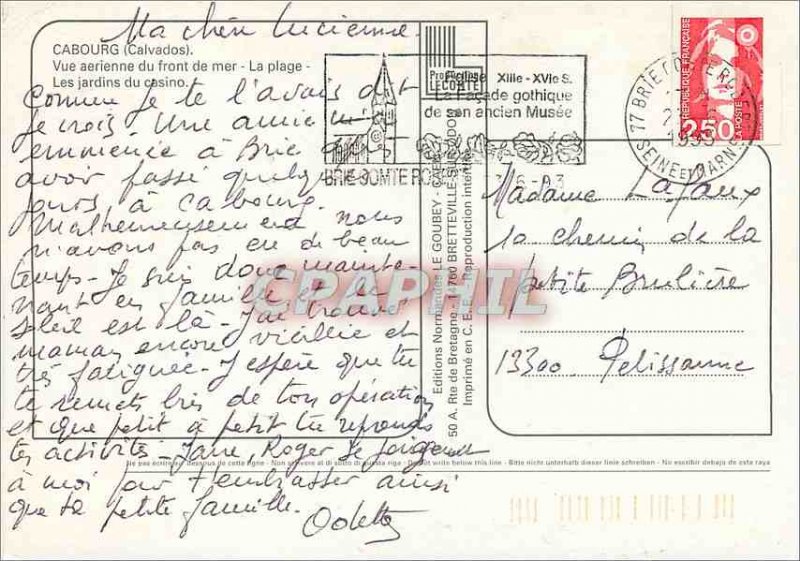 Ma chère Lucienne.
CABOURG (Calvados).
Vue aerienne du front de mer - La plage -
Les jardins du casino.
Comme je te l'avais dit
je crois. Une amie m'
emmenée à Brie
avoir passé quelques
jours, à Cabourg.
Malheureusement nous
n'avons pas eu de beau
temps - Je suis donc mainte-
nant en famille et le
soleil est là - J'ai trouvé
maman encore vieillie et
très fatiguée - J'espère que tu
te remets bien de ton opération
et que petit à petit tu reprends
tes activités - Jane, Roger se joignent
à moi pour t'embrasser ainsi
que ta petite famille.
Odette
LECONTE
XIIIe - XVIe S.
La Façade gothique
de son ancien Musée
BRIE COMTE RO
Editions Normandes LE GOUBEY - CAEN
50 A. Rte de Bretagne - 14760 BRETTEVILLE-S/-ODON
Imprimé en C. E. E. - Reproduction interdite
REPUBLIQUE FRANÇAISE
2,50
LA POSTE
77 BRIE COMTE ROBERT
1993
SEINE ET MARNE
Madame Lafaux
10 chemin de la
petite Brulière
13300. Pelissanne
Ne pas écrire au dessous de cette ligne - Non scrivere al di sotto di questa riga - Do not write below this line - Bitte nicht unterhalb dieser linie schreiben - No escribir debajo de esta raya
CPAPHIL